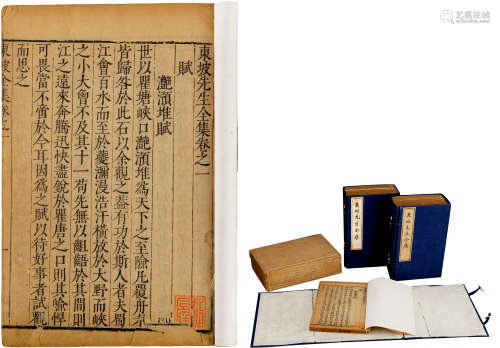 東坡先生全集卷之一
賦
灔澦堆賦
世以瞿塘峽口灔澦堆為天下之至險凡覆舟者
皆歸咎於此石以余觀之蓋有功於斯人者夫蜀
江會百水而至於夔瀰漫浩汗橫放於大野而峽
之小大曾不及其十一苟先無以齟齬於其間則
江之遠來奔騰迅快盡銳於瞿唐之口則其嶮悍
可畏當不啻於今耳因為之賦以待好事者試觀
而思之
東坡全集卷之一
東坡先生全集
東坡先生全集